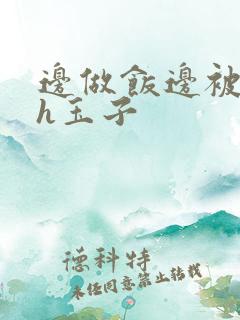 邊做飯邊被
h玉子
德科特
未任同意禁止转载